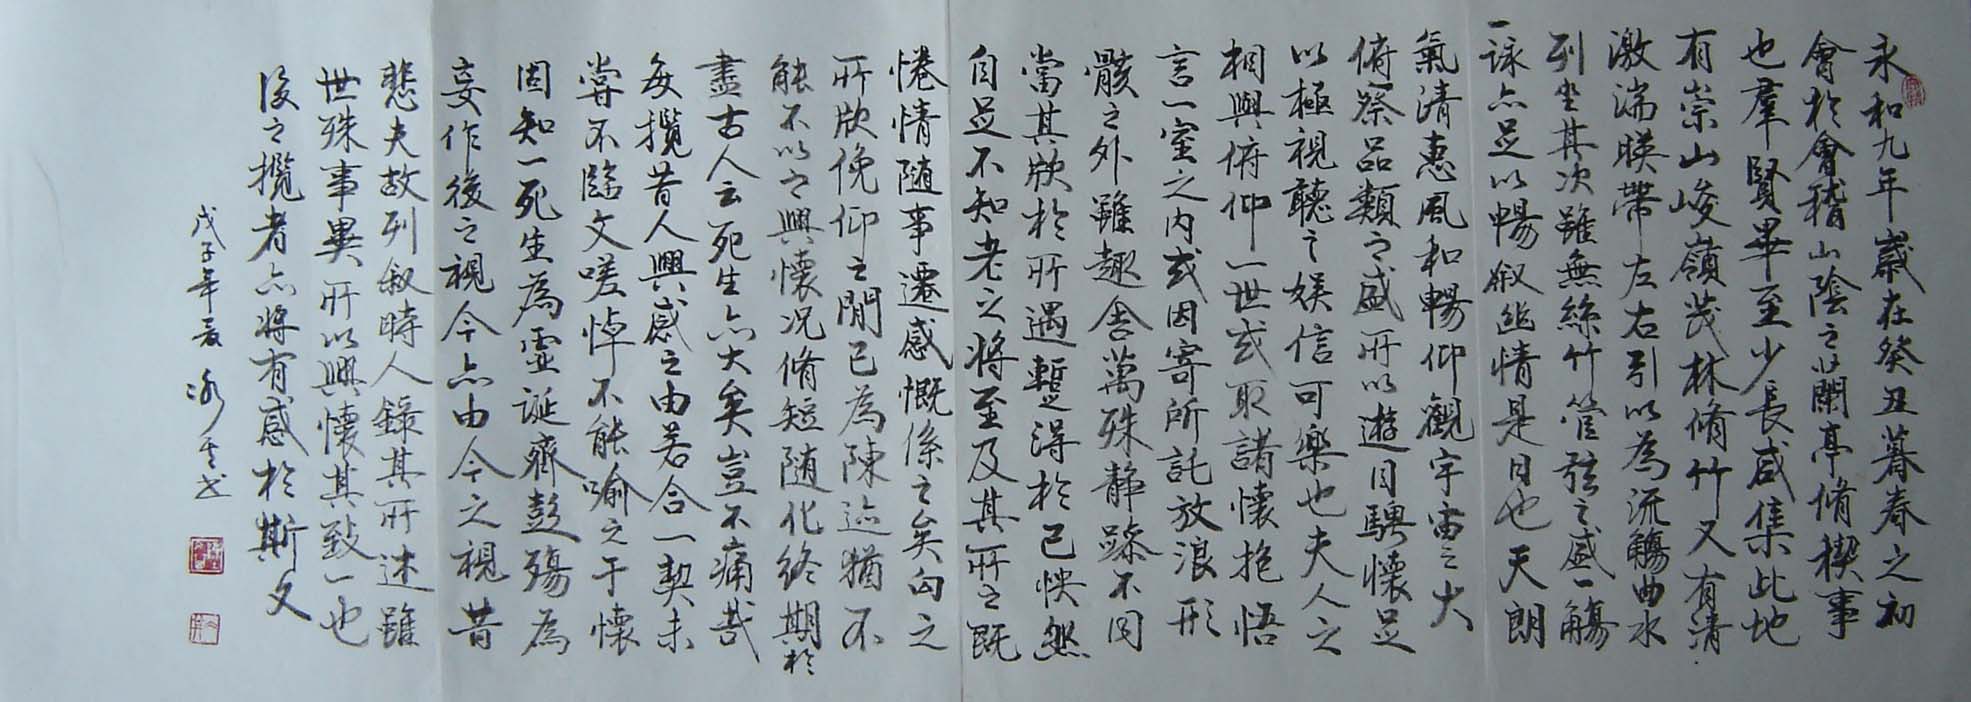 永和九年歲在癸丑暮春之初
會於會稽山陰之蘭亭脩稧事
也羣賢畢至少長咸集此地
有崇山峻嶺茂林脩竹又有清
激湍暎帶左右引以為流觴曲水
列坐其次雖無絲竹管弦之盛一觴
一詠亦足以暢叙幽情是日也天朗
氣清惠風和暢仰觀宇宙之大
俯察品類之盛所以遊目騁懷足
以極視聽之娛信可樂也夫人之
相與俯仰一世或取諸懷抱悟
言一室之內或因寄所託放浪形
骸之外雖趣舍萬殊静躁不同
當其欣於所遇蹔得於己怏然
自足不知老之將至及其所之既
惓情随事遷感慨係之矣向之
所欣俛仰之閒已為陳迹猶不
能不以之興懷况脩短随化終期於
盡古人云死生亦大矣豈不痛哉
每攬昔人興感之由若合一契未
嘗不臨文嗟悼不能喻之于懷
固知一死生為虛誕齊彭殤為
妄作後之視今亦由今之視昔
悲夫故列叙時人錄其所述雖
世殊事異所以興懷其致一也
後之攬者亦將有感於斯文
戊子年夏